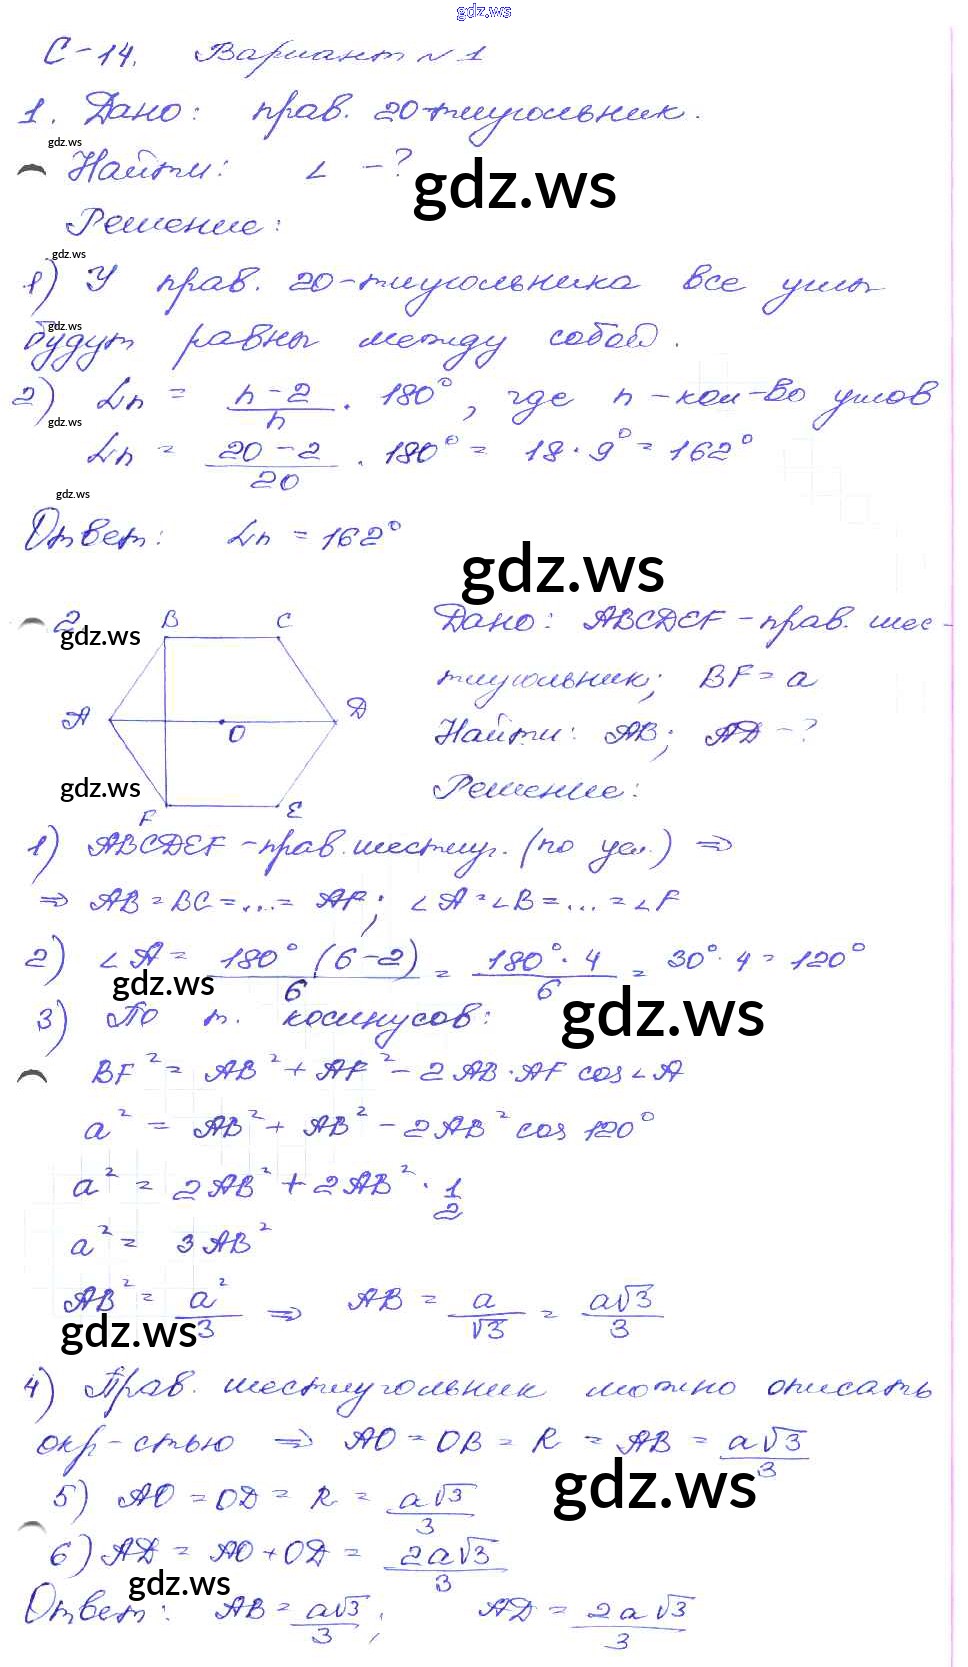 gdz.ws
С-14. Вариант №1
1. Дано: прав. 20-тиугольник.
gdz.ws
Найти: ∠ - ?
gdz.ws
Решение:
gdz.ws
1) У прав. 20-тиугольника все углы
gdz.ws
будут равны между собой.
2) ∠n = n-2/n · 180°, где n - кол-во углов
gdz.ws
∠n = 20-2/20 · 180° = 18·9° = 162°
gdz.ws
Ответ: ∠n = 162°
gdz.ws
2.
gdz.ws
B C
A D
O
gdz.ws
F E
Дано: ABCDEF - прав. шес-
тиугольник; BF = a
Найти: AB; AD - ?
Решение:
1) ABCDEF - прав. шестиуг. (по усл.) ⇒
⇒ AB = BC = ... = AF; ∠A = ∠B = ... = ∠F
2) ∠A = 180°(6-2)/6 = 180°·4/6 = 30°·4 = 120°
gdz.ws
gdz.ws
3) По т. косинусов:
BF² = AB² + AF² - 2AB·AF cos∠A
a² = AB² + AB² - 2AB² cos 120°
a² = 2AB² + 2AB² · 1/2
a² = 3AB²
AB² = a²/3 ⇒ AB = a/√3 = a√3/3
gdz.ws
4) Прав. шестиугольник можно описать
окр-стью ⇒ AO = OB = R = AB = a√3/3
gdz.ws
5) AO = OD = R = a√3/3
6) AD = AO + OD = 2a√3/3
gdz.ws
Ответ: AB = a√3/3; AD = 2a√3/3